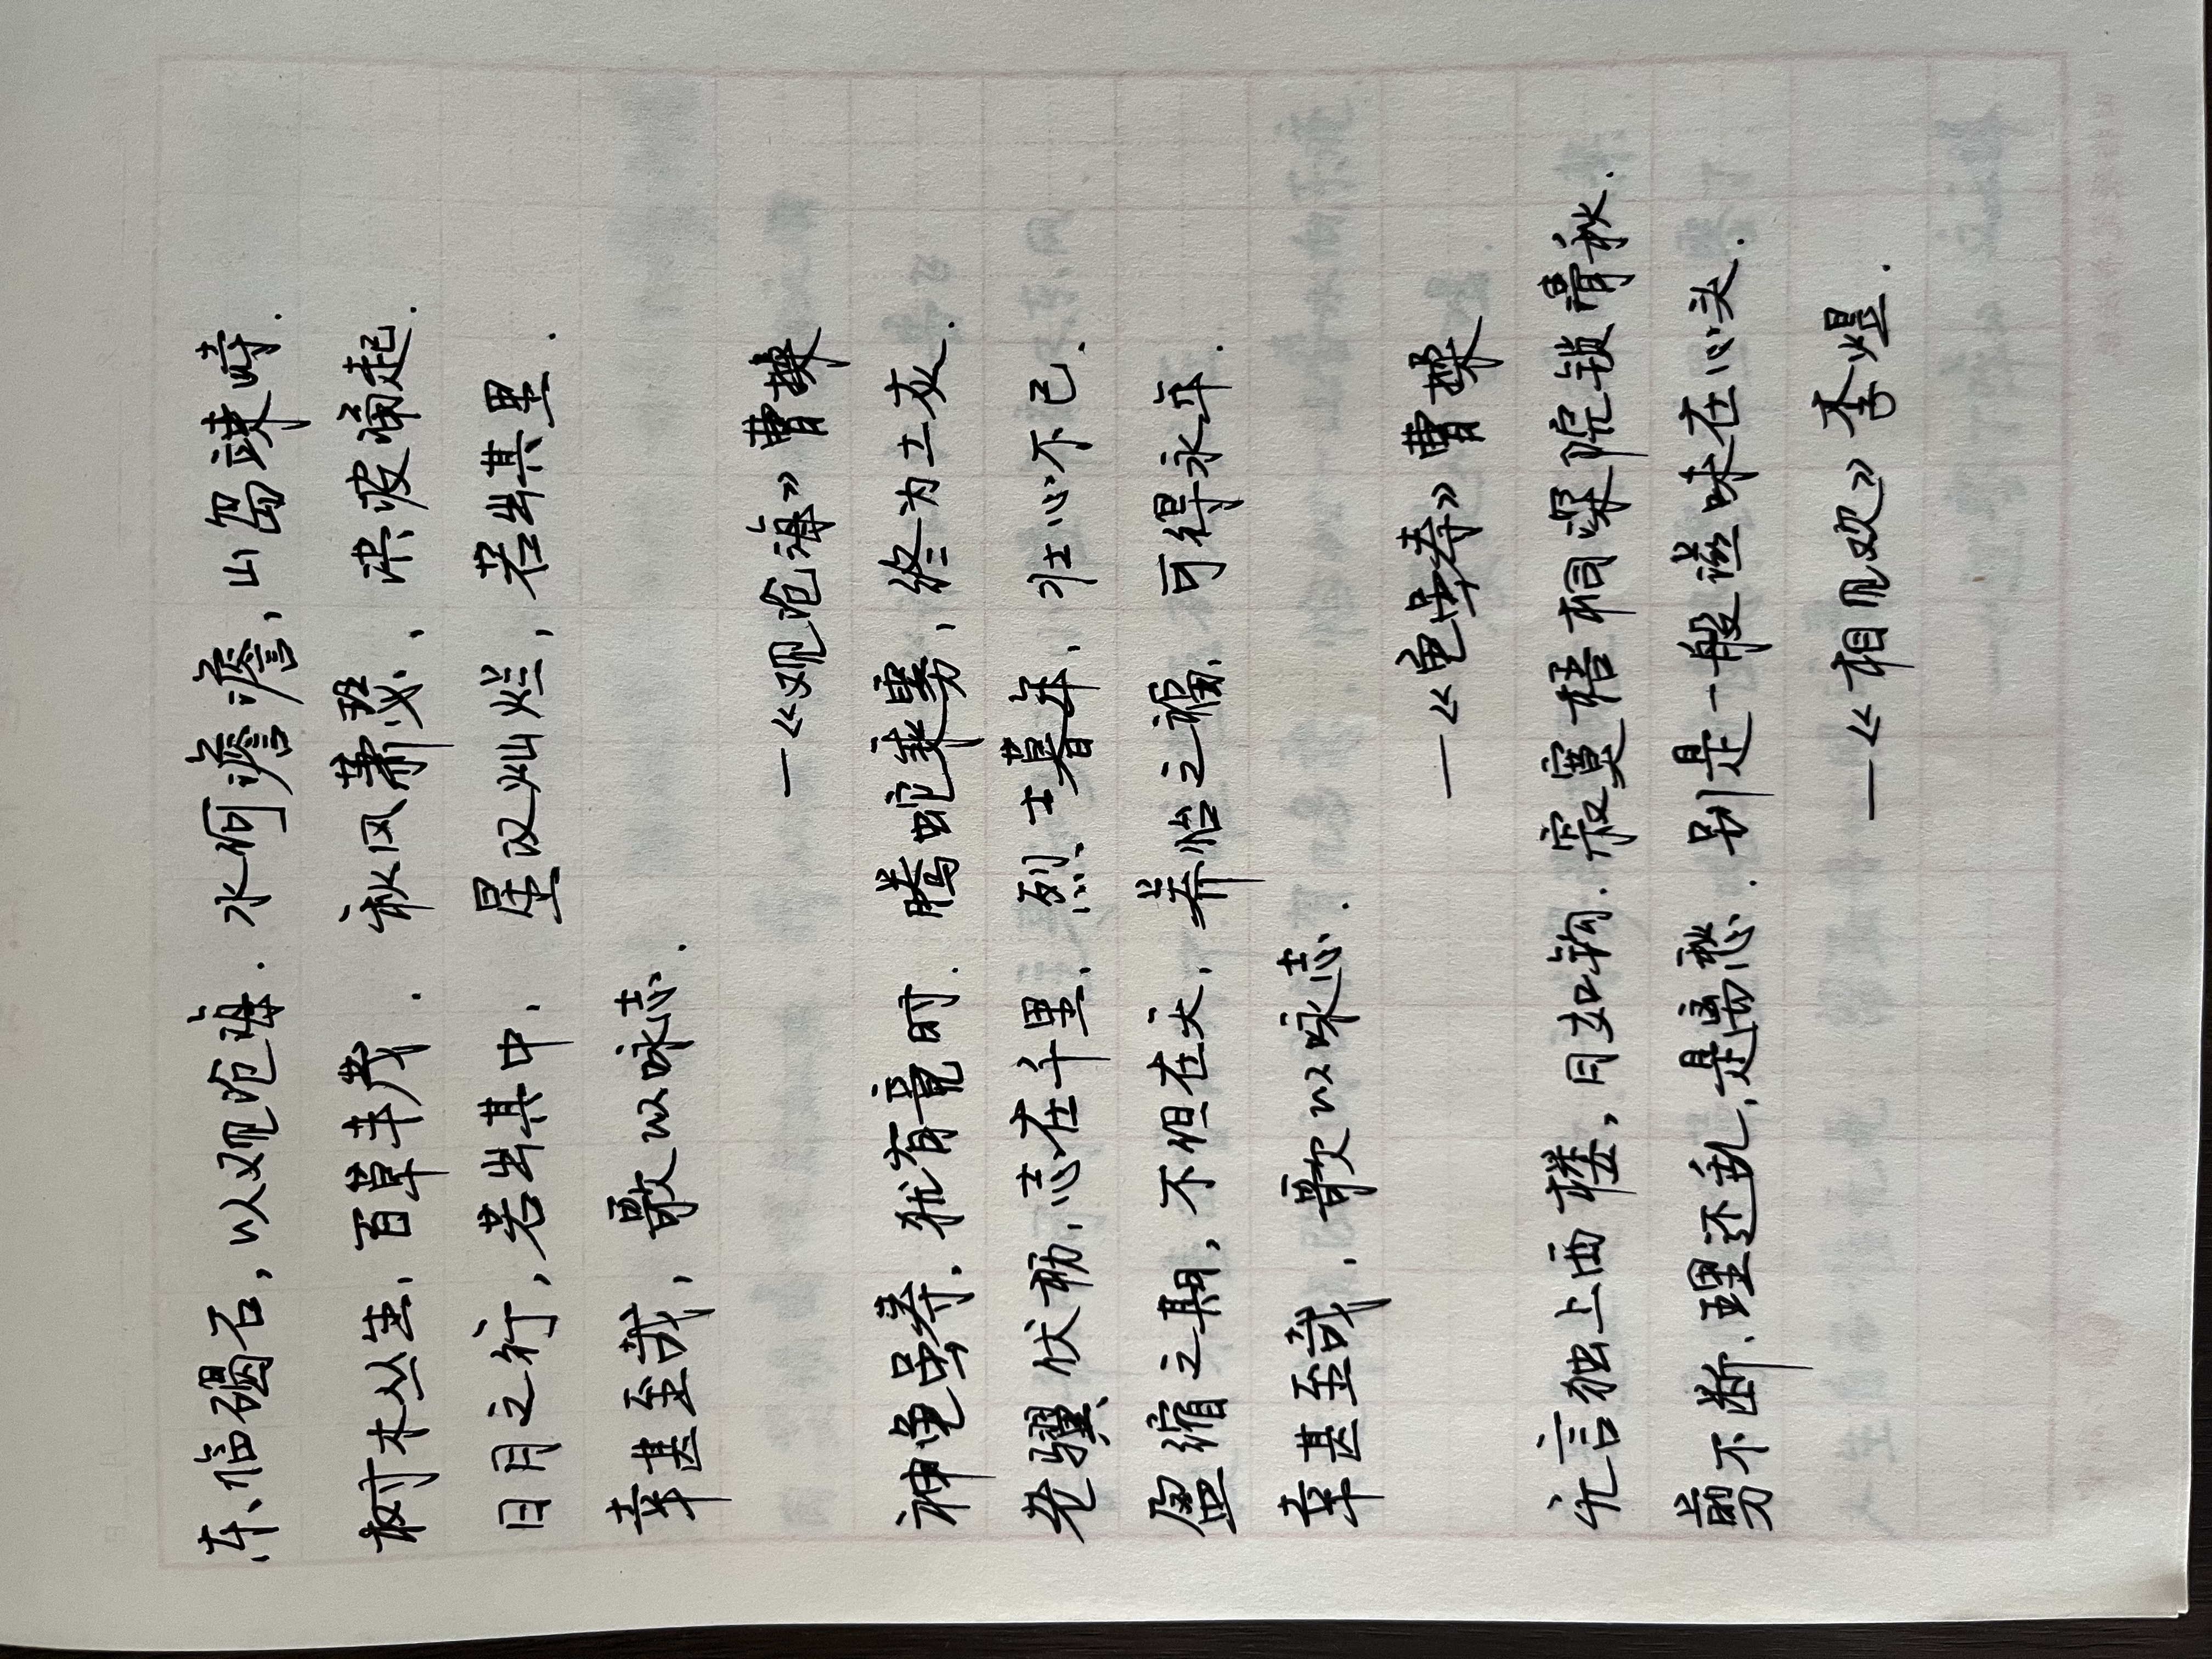 东临碣石,以观沧海.水何澹澹,山岛竦峙.
树木丛生,百草丰茂.秋风萧瑟,洪波涌起.
日月之行,若出其中.星汉灿烂,若出其里.
幸甚至哉,歌以咏志.
—《观沧海》曹操
神龟虽寿,犹有竟时.腾蛇乘雾,终为土灰.
老骥伏枥,志在千里.烈士暮年,壮心不已.
盈缩之期,不但在天,养怡之福,可得永年.
幸甚至哉,歌以咏志.
—《龟虽寿》曹操
无言独上西楼,月如钩.寂寞梧桐深院锁清秋.
剪不断,理还乱,是离愁.别是一般滋味在心头.
—《相见欢》李煜.